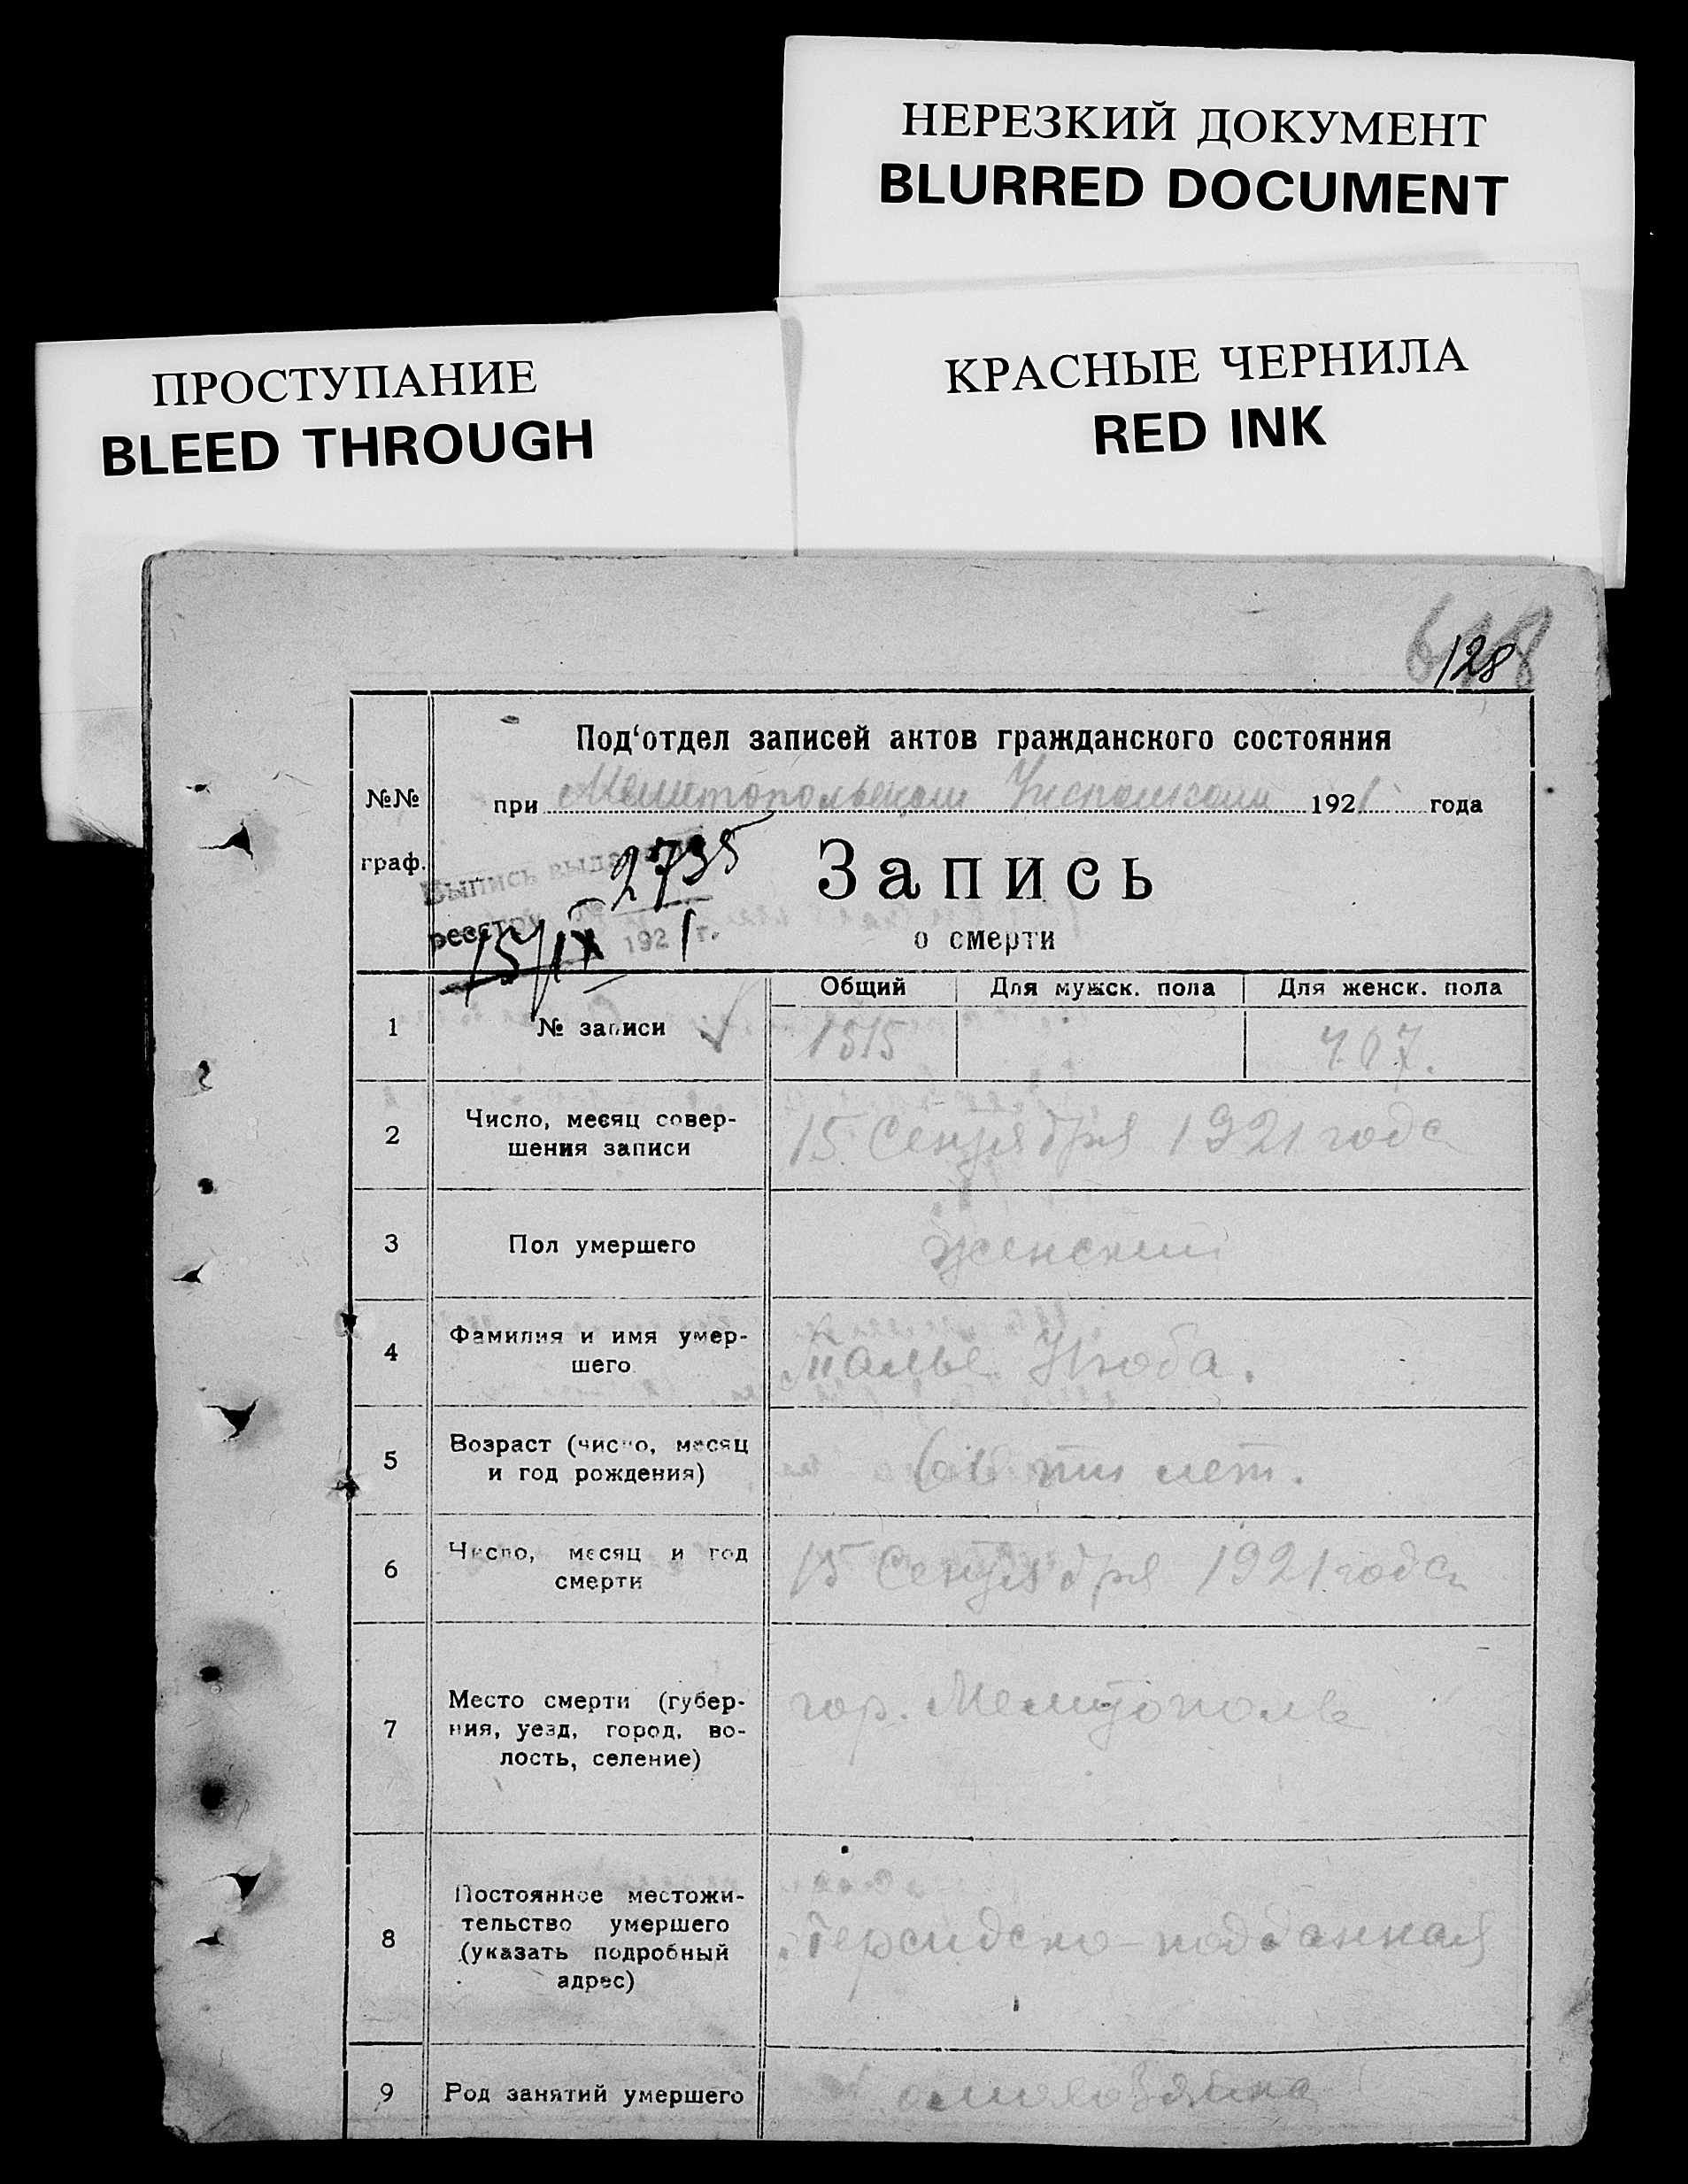 НЕРЕЗКИЙ ДОКУМЕНТ
BLURRED DOCUMENT
ПРОСТУПАНИЕ
BLEED THROUGH
КРАСНЫЕ ЧЕРНИЛА
RED INK
128
Под‘отдел записей актов гражданского состояния
№№
граф.
при Мелитопольском 1921 года
Выпись выда 2735
реестр № 
15/IX 1921 г.
Запись
о смерти
Общий Для мужск. пола Для женск. пола
1 № записи 1515 707.
2 Число, месяц совер-
шения записи
15 Сентября 1921 года
3 Пол умершего женский
4 Фамилия и имя умер-
шего
5 Возраст (число, месяц
и год рождения)
лет.
6 Число, месяц и год
смерти
15 Сентября 1921 года
7 Место смерти (губер-
ния, уезд, город, во-
лость, селение)
гор. Мелитополь
8 Постоянное местожи-
тельство умершего
(указать подробный
адрес)
Персидско-подданная
9 Род занятий умершего